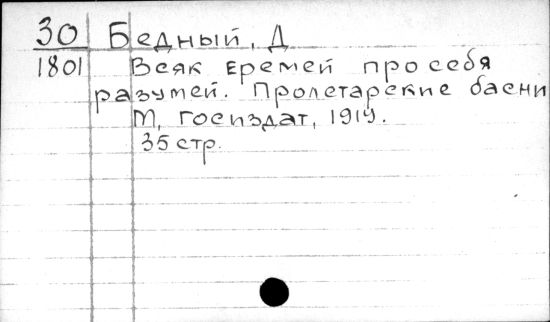 30 Бедный, Д
1801 Всяк Еремей про себя
разумей. Пролетарские басни
М, Госиздат, 1919.
35 стр.